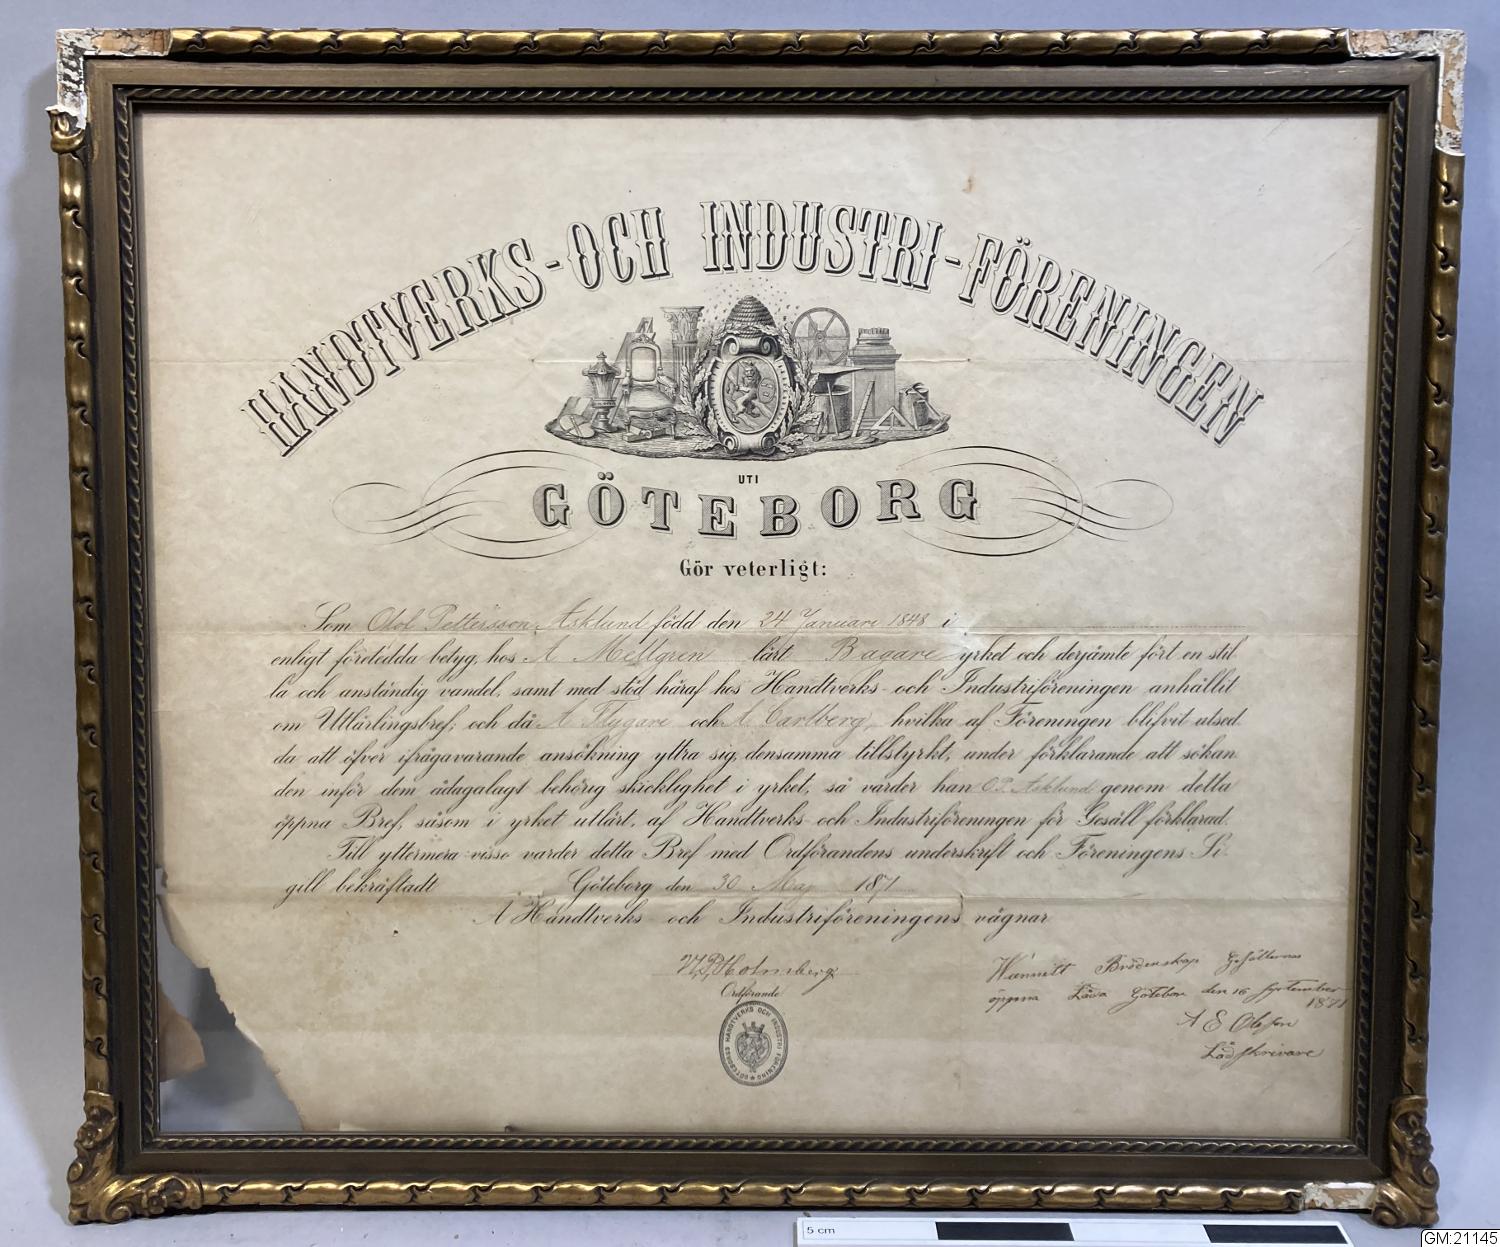 HANDTVERKS- OCH INDUSTRI-FÖRENINGEN
UTI
GÖTEBORG
Gör veterligt:
Som Olof Pettersson Asklund född den 24 Januari 1848 i
enligt företedda betyg, hos A Mellgren lärt Bagare yrket och derjämte fört en stil-
la och anständig vandel, samt med stöd häraf hos Handtverks- och Industriföreningen anhållit
om Utlärlingsbref; och då A Flygare och A Carlberg, hvilka af Föreningen blifvit utsed-
da att öfver ifrågavarande ansökning yttra sig, densamma tillstyrkt, under förklarande att sökan-
den inför dem ådagalagt behörig skicklighet i yrket, så varder han O.P. Asklund genom detta
öppna Bref, såsom i yrket utlärt, af Handtverks- och Industriföreningen för Gesäll förklarad.
Till yttermera visso varder detta Bref med Ordförandens underskrift och Föreningens Si-
gill bekräftadt Göteborg den 30 Maj 1871
Å Handtverks- och Industriföreningens vägnar
Holmberg
Ordförande
GÖTEBORGS HANDTVERKS OCH INDUSTRI FÖRENING
Wunnitt Brödenskap Gesällernas
öppna Låda Götebor den 16 September
1871
A E Olsson
Lådskrivare
5 cm
GM:21145